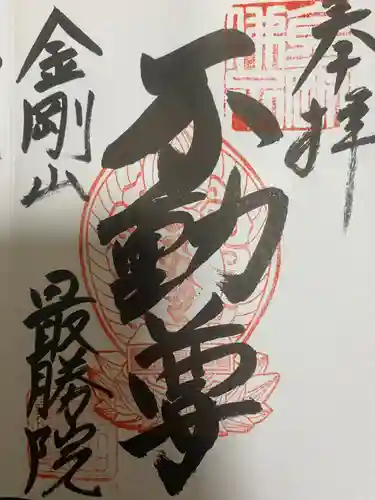 奉拝
不動尊
金剛山
最勝院